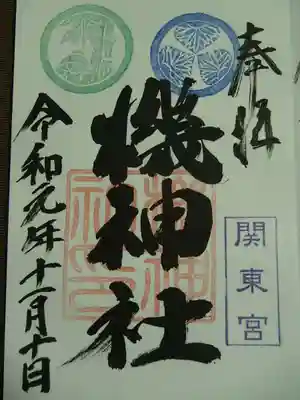 奉拝
機神社
関東宮
令和元年十一月十日